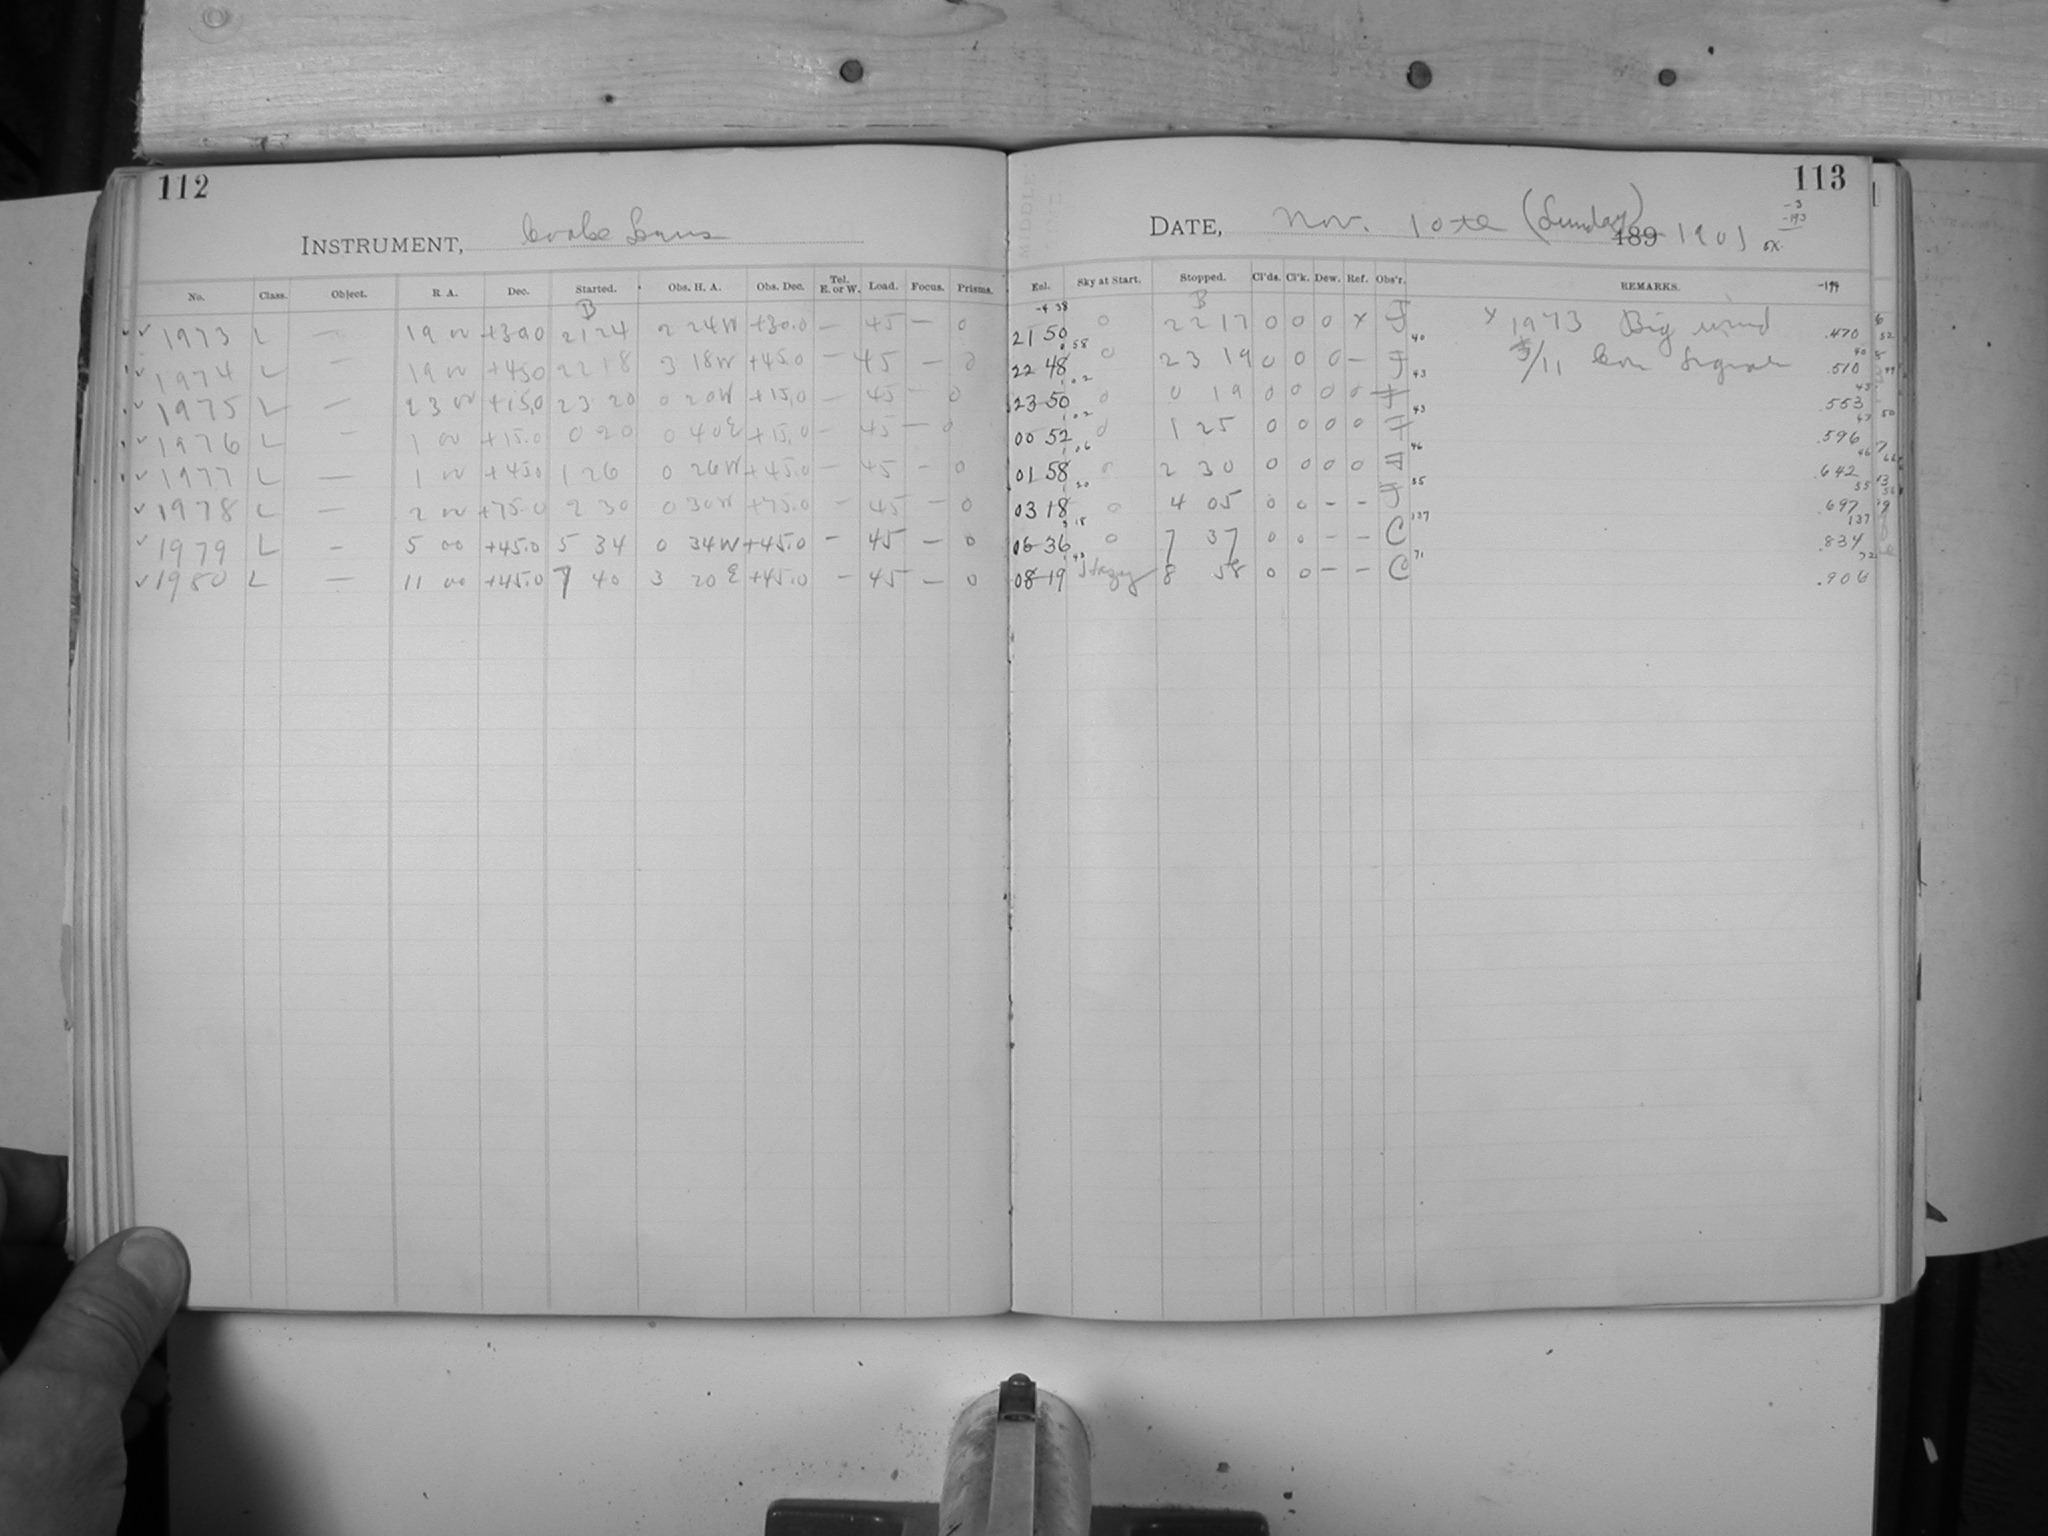 112
INSTRUMENT, Cooke Lens
No. Class. Object. R. A. Dec. Started. Obs. H. A. Obs. Dec. Tel. E. or W. Load. Focus. Prisms.
B
✓ 1973 L — 19 00 +30.0 21 24 2 24W +30.0 — 45 — 0
✓ 1974 L — 19 00 +45.0 22 18 3 18W +45.0 — 45 — 0
✓ 1975 L — 23 00 +15.0 23 20 0 20W +15.0 — 45 — 0
✓ 1976 L — 1 00 +15.0 0 20 0 40E +15.0 — 45 — 0
✓ 1977 L — 1 00 +45.0 1 26 0 26W +45.0 — 45 — 0
✓ 1978 L — 2 00 +75.0 2 30 0 30W +75.0 — 45 — 0
✓ 1979 L — 5 00 +45.0 5 34 0 34W +45.0 — 45 — 0
✓ 1980 L — 11 00 +45.0 7 40 3 20E +45.0 — 45 — 0
113
DATE, Nov. 10th (Sunday) 189 1901
-3
-193
Enl. Sky at Start. Stopped. Cl'ds. Cl'k. Dew. Ref. Obs'r. REMARKS. -199
-4 38 B
21 50 0 22 17 0 0 0 x J x 1973 Big wind .470
58 40
22 48 0 23 19 0 0 0 — J /11 Com Signal .510
1 02 43
23 50 0 0 19 0 0 0 0 J .553
1 02 43
00 52 0 1 25 0 0 0 0 J .596
1 06 46
01 58 0 2 30 0 0 0 0 J .642
1 20 55
03 18 0 4 05 0 0 — — J .697
3 18 137
06 36 0 7 37 0 0 — — C .834
1 43 71
08 19 Hazy 8 58 0 0 — — C .906